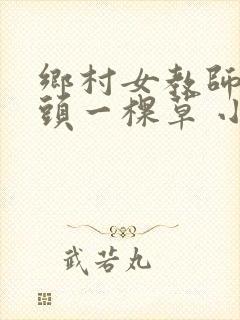 鄉村女教師
頭一棵草 小
武若丸